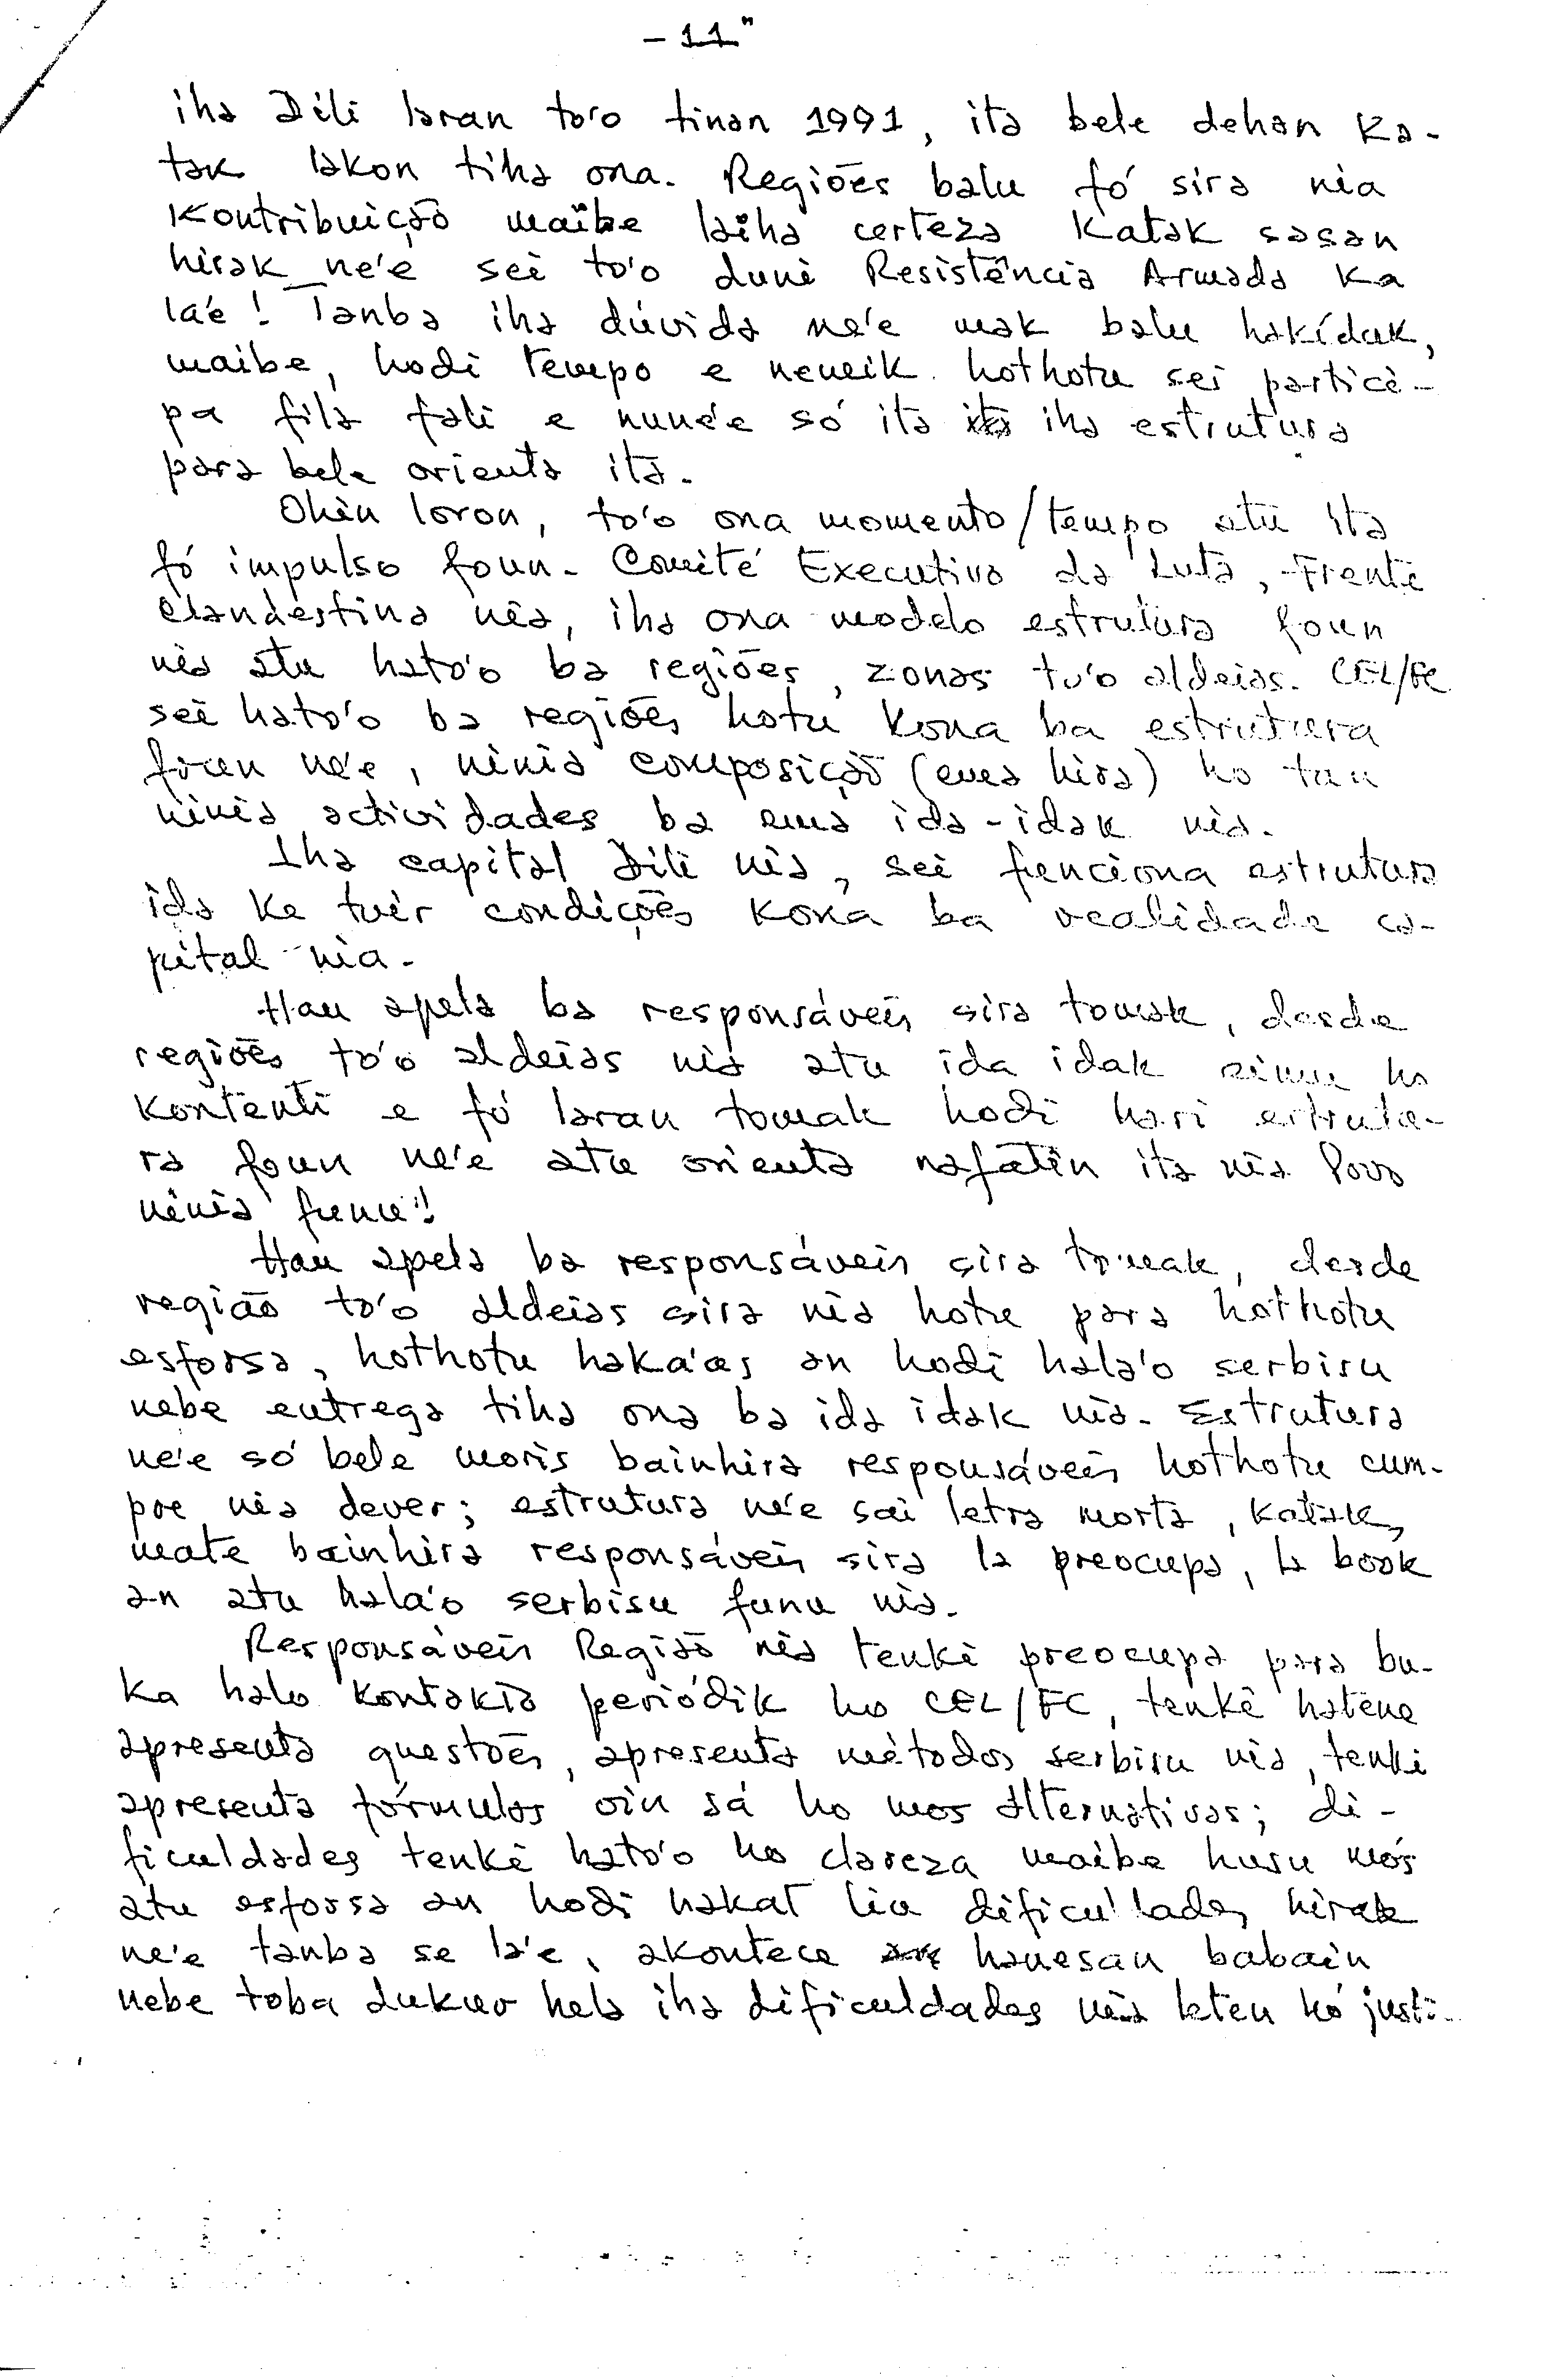 - 11 "
iha Dili laran to'o tinan 1991, ita bele dehan ka-
tak lakon tiha ona. Regiões balu fó sira nia
kontribuição maibe laiha certeza katak sasan
hirak ne'e sei to'o duni Resistência Armada ka
la'e! Tanba iha dúvida ne'e mak balu hakiduk,
maibe, hodi tempo e neneik hothotu sei partici-
pa fila fali e nune'e só ita iha estrutura
para bele orienta ita.
Ohin loron, to'o ona momento/tempo atu ita
fó impulso foun. Comité Executivo da Luta, Frente
Clandestina nia, iha ona modelo estrutura foun
nia atu hato'o ba regiões, zonas to'o aldeias. CEL/FC
sei hato'o ba regiões hotu kona ba estrutura
foun ne'e, ninia composição (ema hira) ho tan
ninia actividades ba ema ida-idak nia.
Iha capital Dili nia, sei funciona estrutura
ida ke tuir condições kona ba realidade ca-
pital nia.
Hau apela ba responsáveis sira tomak, desde
regiões to'o aldeias nia atu ida idak simu ho
kontenti e fó laran tomak hodi hari estrutu-
ra foun ne'e atu orienta nafatin ita nia Povo
ninia funu!
Hau apela ba responsáveis sira tomak, desde
região to'o aldeias sira nia hotu para hothotu
esforsa, hothotu haka'as an hodi hala'o serbisu
nebe entrega tiha ona ba ida idak nia. Estrutura
ne'e só bele moris bainhira responsáveis hothotu cum-
pre nia dever; estrutura ne'e sai letra morta, katak,
mate bainhira responsáveis sira la preocupa, la book
an atu hala'o serbisu funu nia.
Responsáveis Região nia tenki preocupa para bu-
ka halo kontakto periódik ho CEL/FC, tenki hatene
apresenta questões, apresenta métodos serbisu nia, tenki
apresenta fórmulas oin sá ho mos alternativas; di-
ficuldades tenki hato'o ho clareza maibe husu mós
atu esforsa an hodi hakat liu dificuldades hirak
ne'e tanba se la'e, akontece hanesan babain
nebe toba dukur hela iha dificuldades nia leten ho justi-